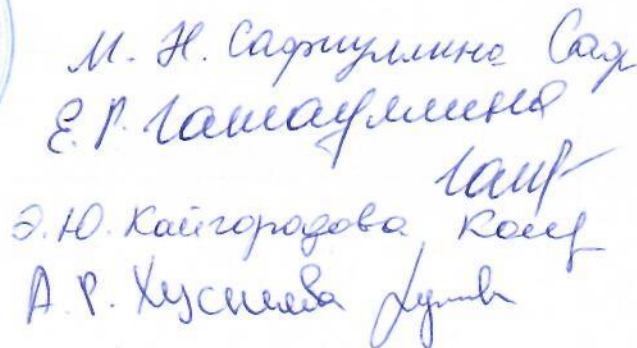 М. Н. Сафиуллина Саф
Е. Р. Гатауллина
Э. Ю. Кайгородова Кайг
А. Р. Хусниева